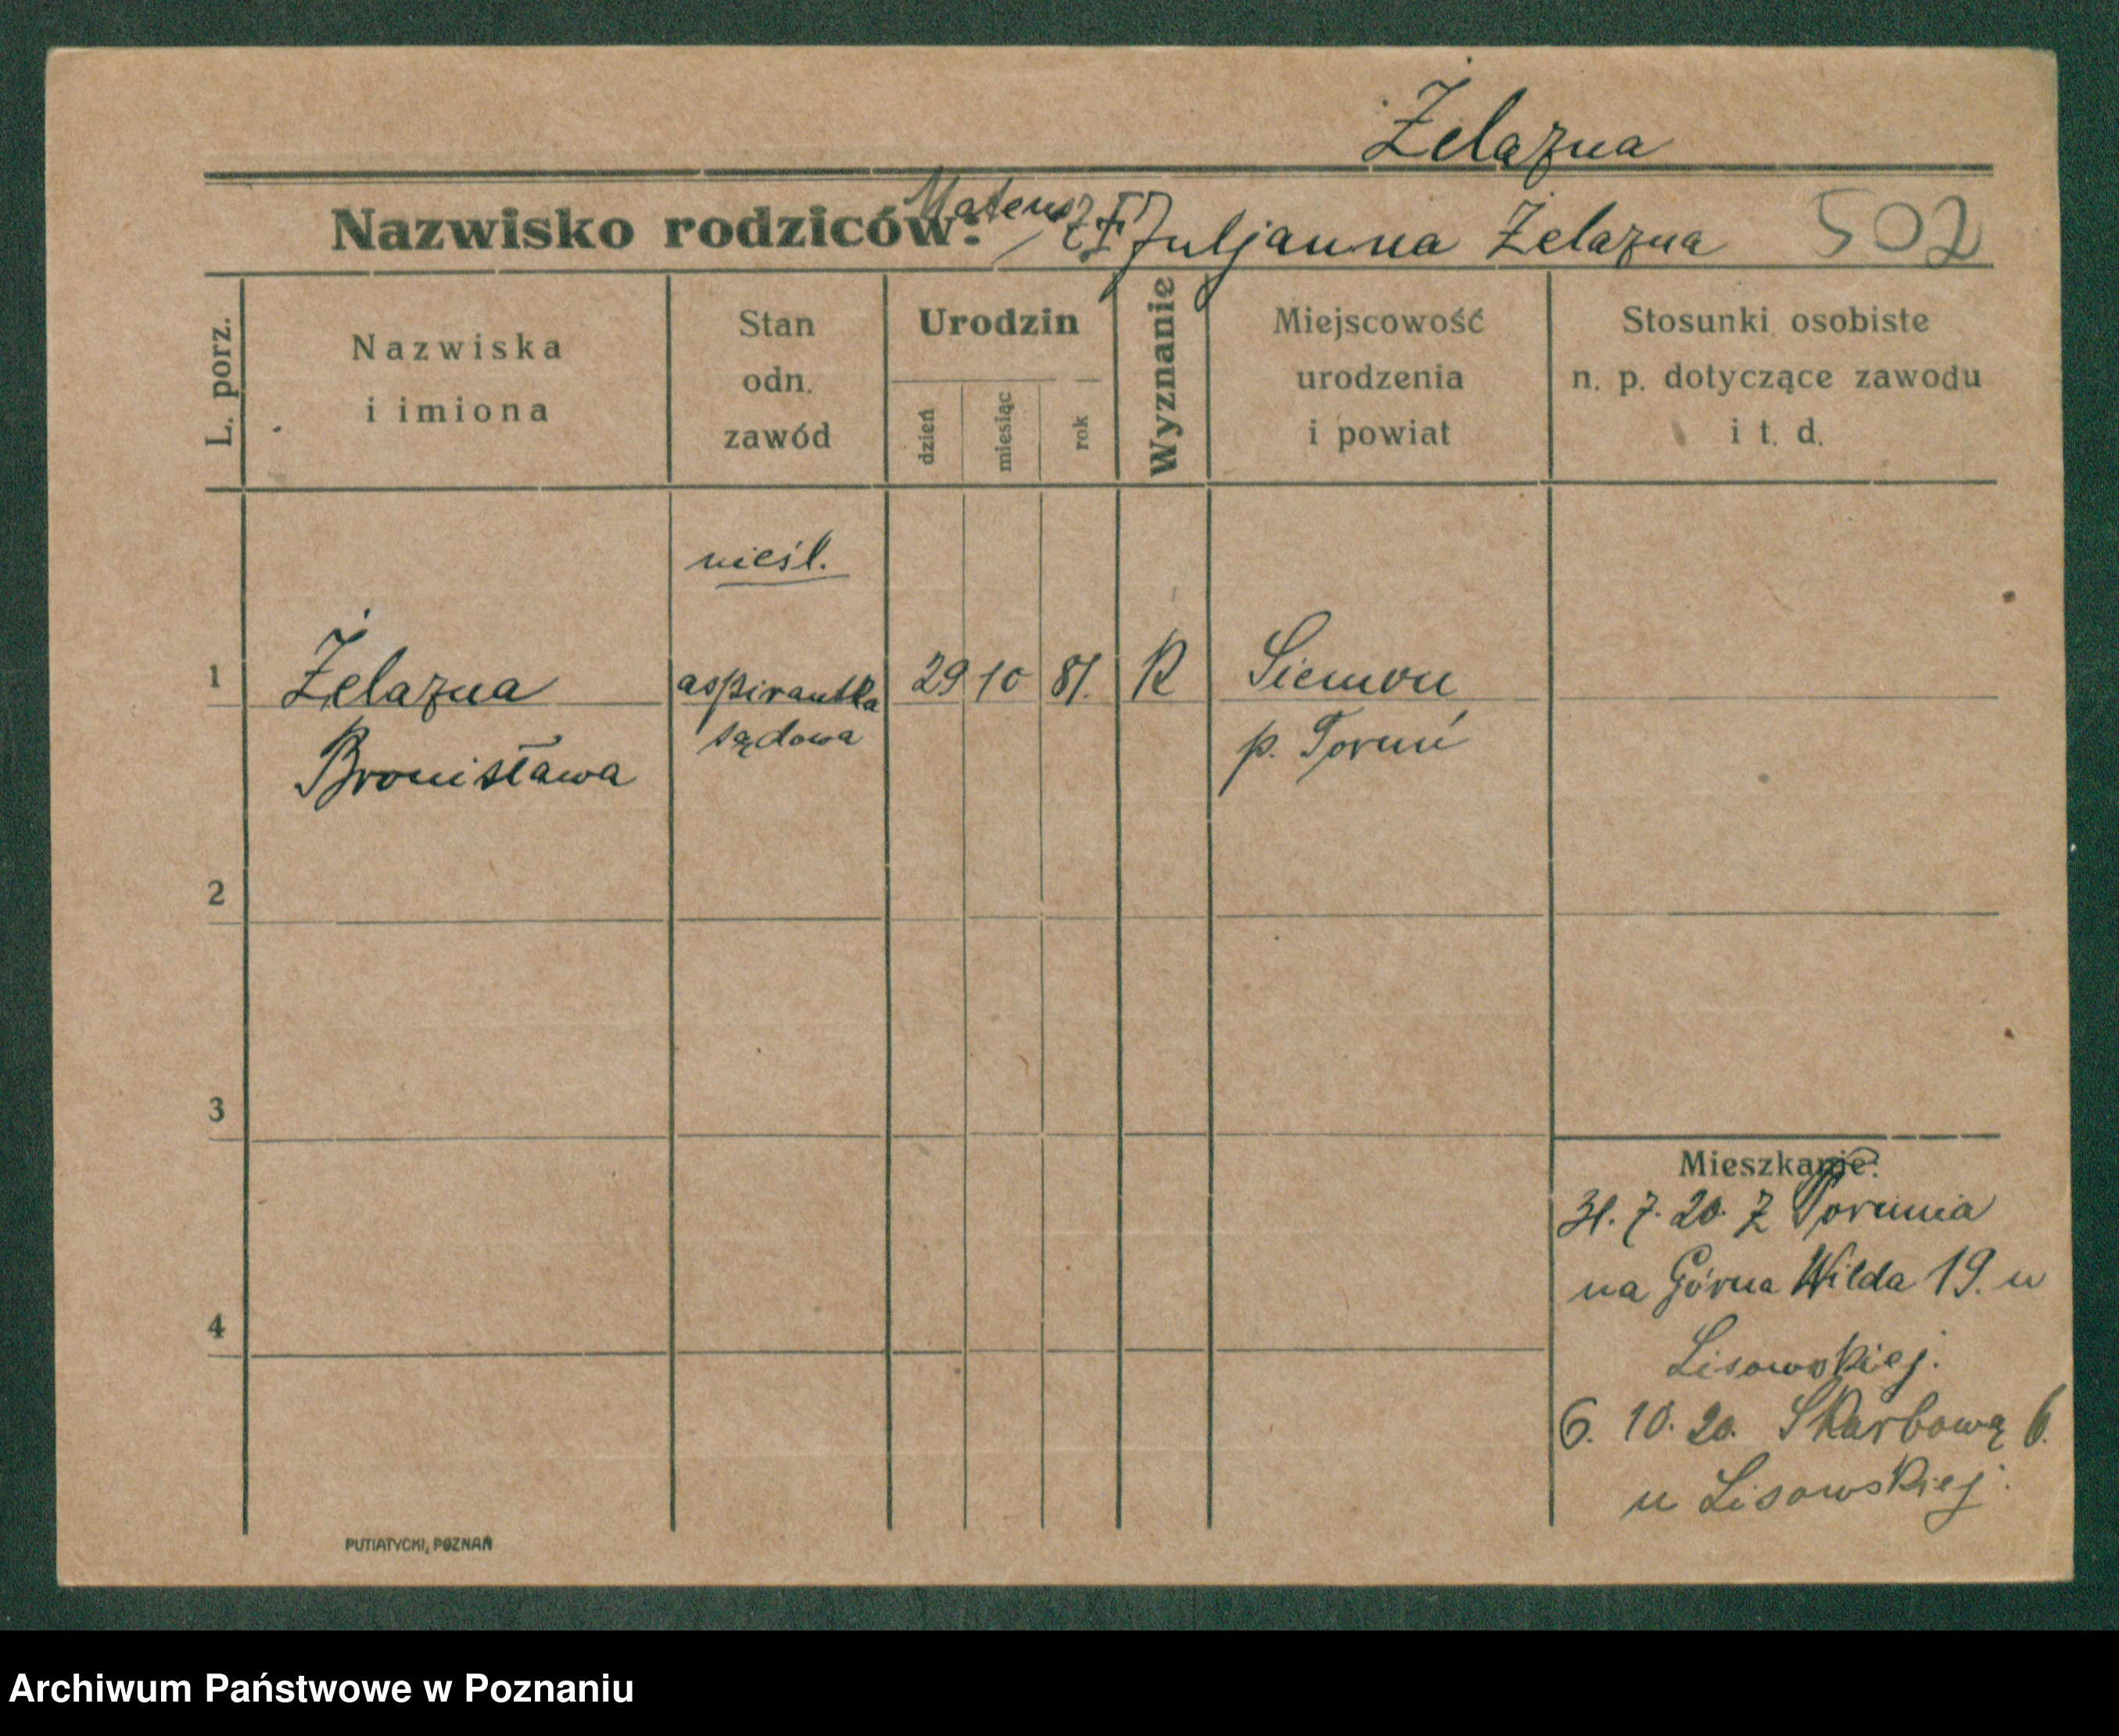 Żelazna
Nazwisko rodziców: Mateusz i Juljanna Żelazna 502
L. porz.
Nazwiska
i imiona
Stan
odn.
zawód
Urodzin
dzień
miesiąc
rok
Wyznanie
Miejscowość
urodzenia
i powiat
Stosunki osobiste
n. p. dotyczące zawodu
i t. d.
nieśl.
1 Żelazna aspirantka 29 10 81. R Siemon
Bronisława sądowa p. Toruń
2
3
4
Mieszkanie:
31. 7. 20. Z Torunia
na Górna Wilda 19. u
Lisowskiej.
6. 10. 20. Skarbową 6.
u Lisowskiej.
PUTIATYCKI, POZNAŃ
Archiwum Państwowe w Poznaniu